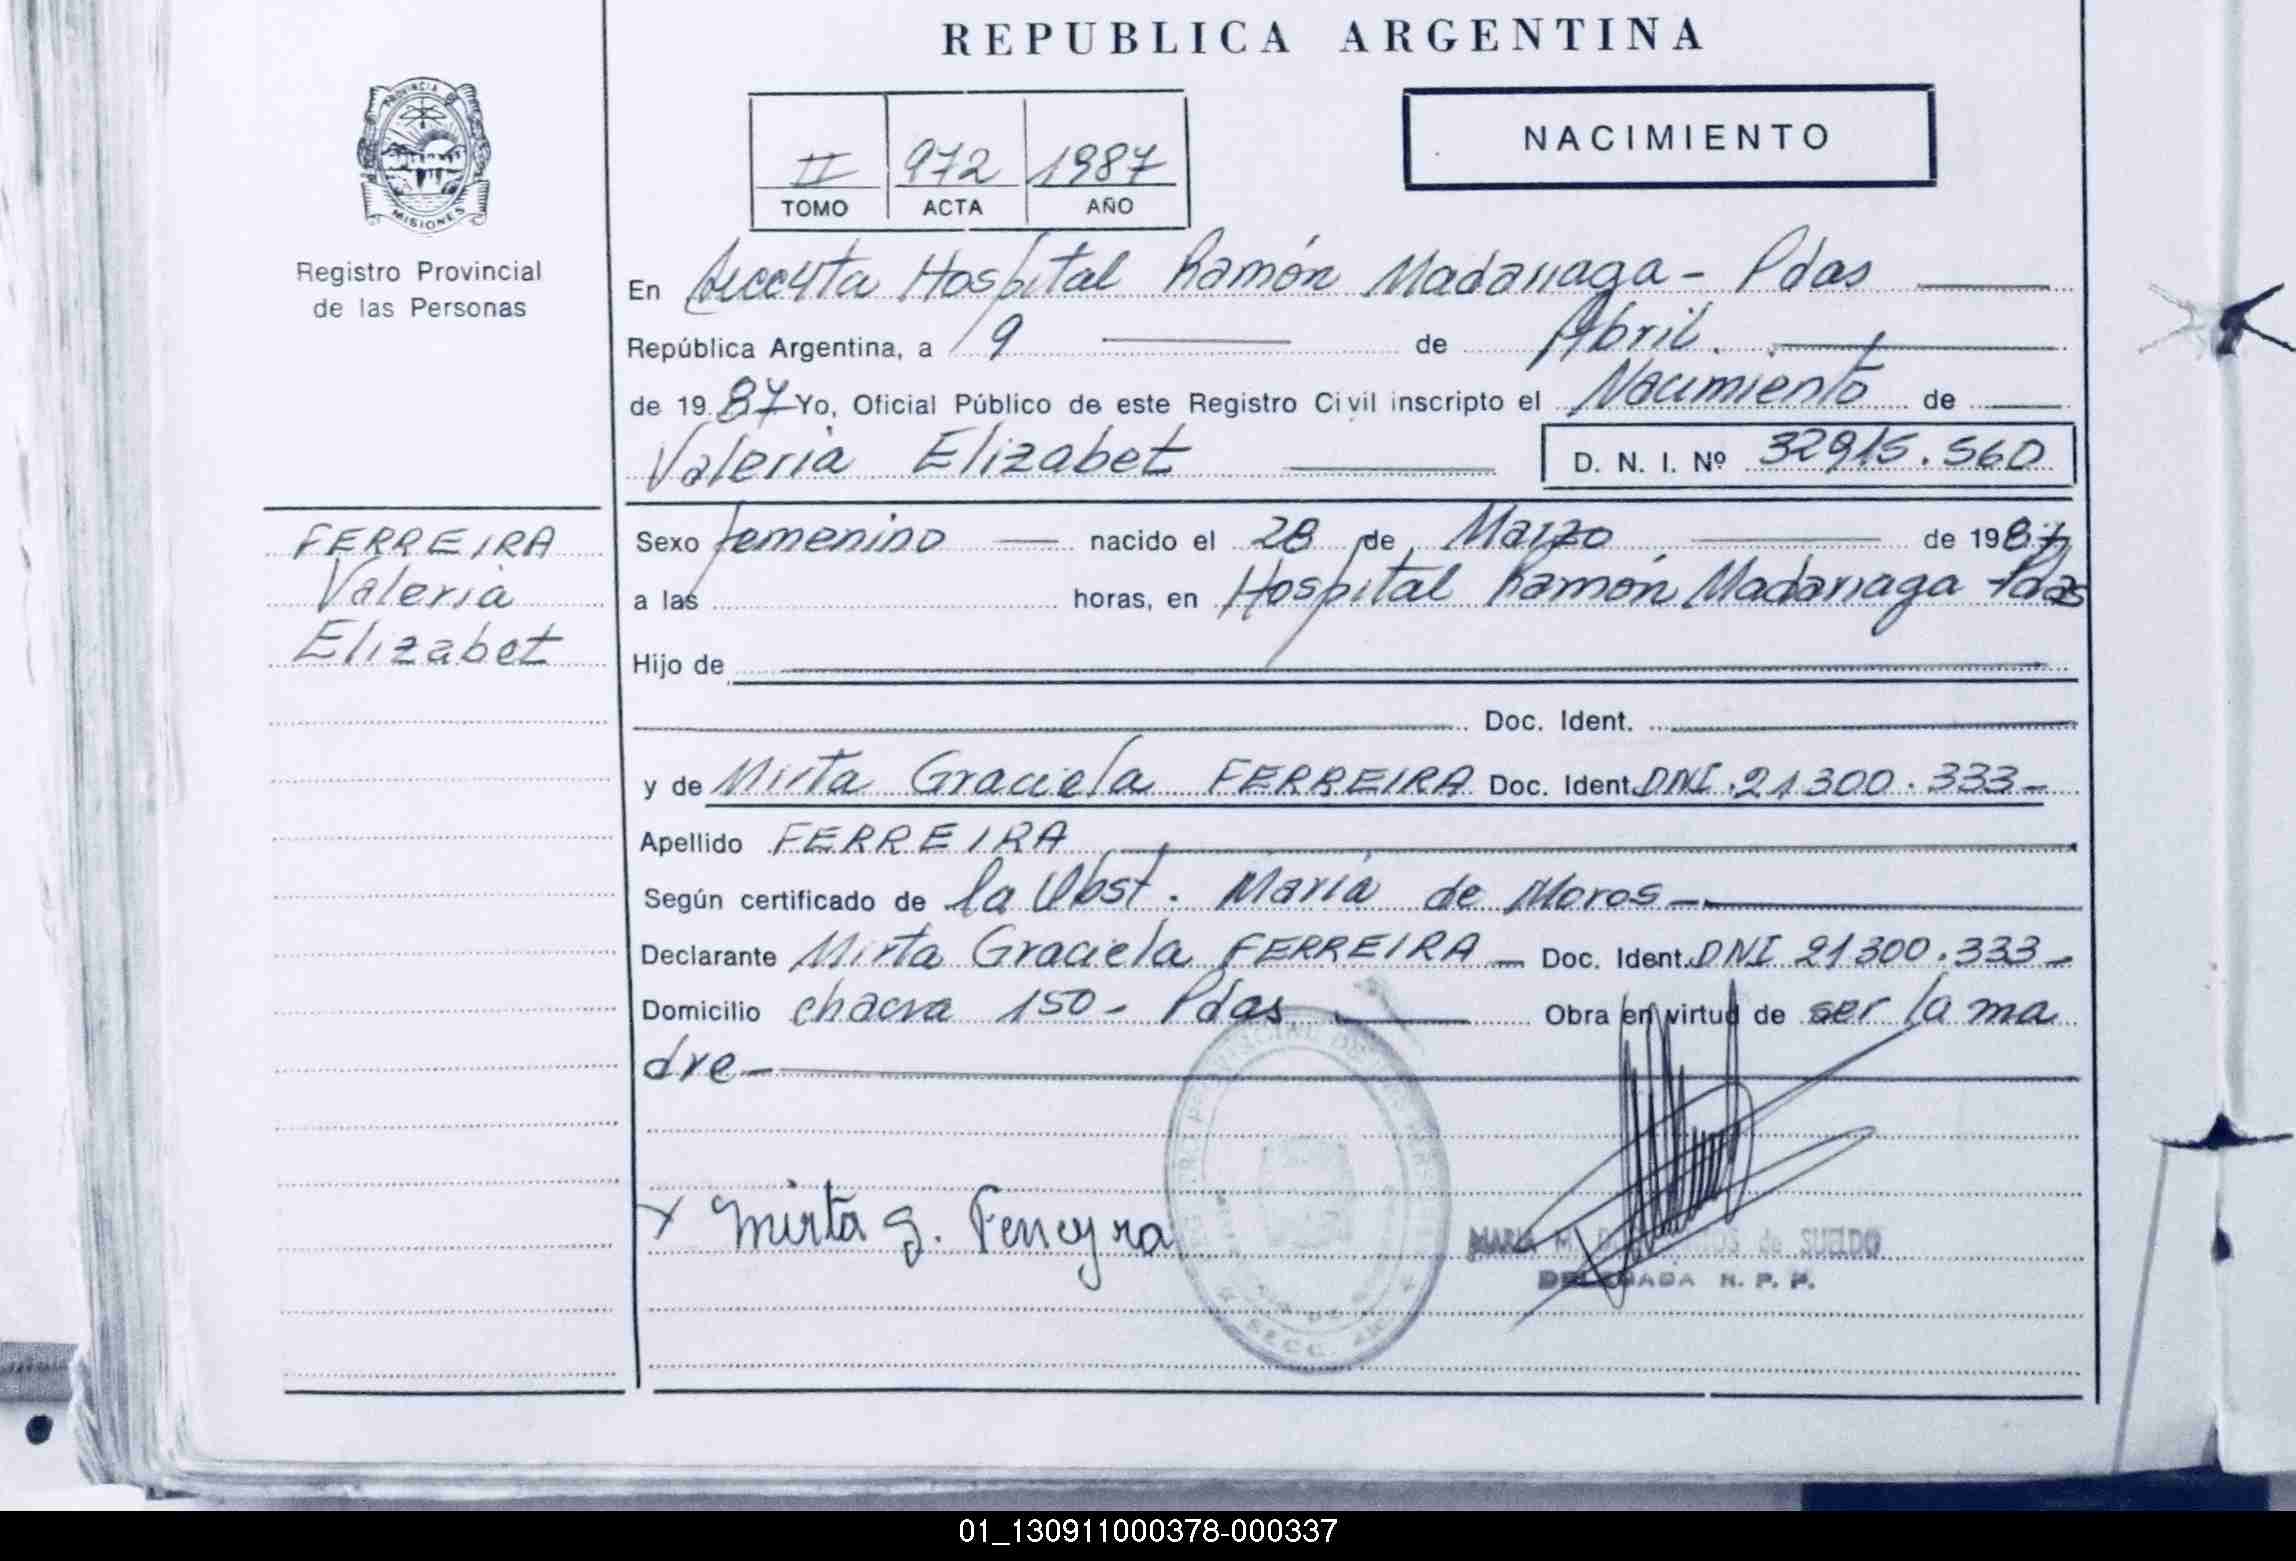 REPUBLICA ARGENTINA
PROVINCIA DE
MISIONES
Registro Provincial
de las Personas
NACIMIENTO
II 972 1987
TOMO ACTA AÑO
En Hospital Ramón Madariaga - Pdas
República Argentina, a 9 de Abril.
de 19 87 Yo, Oficial Público de este Registro Civil inscripto el Nacimiento de
Valeria Elizabet D. N. I. Nº 32915.560
FERREIRA
Valeria
Elizabet
Sexo femenino nacido el 28 de Marzo de 1987
a las horas, en Hospital Ramón Madariaga - Pdas
Hijo de
Doc. Ident.
y de Mirta Graciela FERREIRA Doc. Ident. DNI. 21300.333-
Apellido FERREIRA
Según certificado de la Obst. Maria de Moros -
Declarante Mirta Graciela FERREIRA - Doc. Ident. DNI 21300.333-
Domicilio chacra 150 - Pdas Obra en virtud de ser la ma
dre -
x Mirta G. Ferreyra
MARIA M. de SUELDO
DELEGADA R. P. P.
01_130911000378-000337